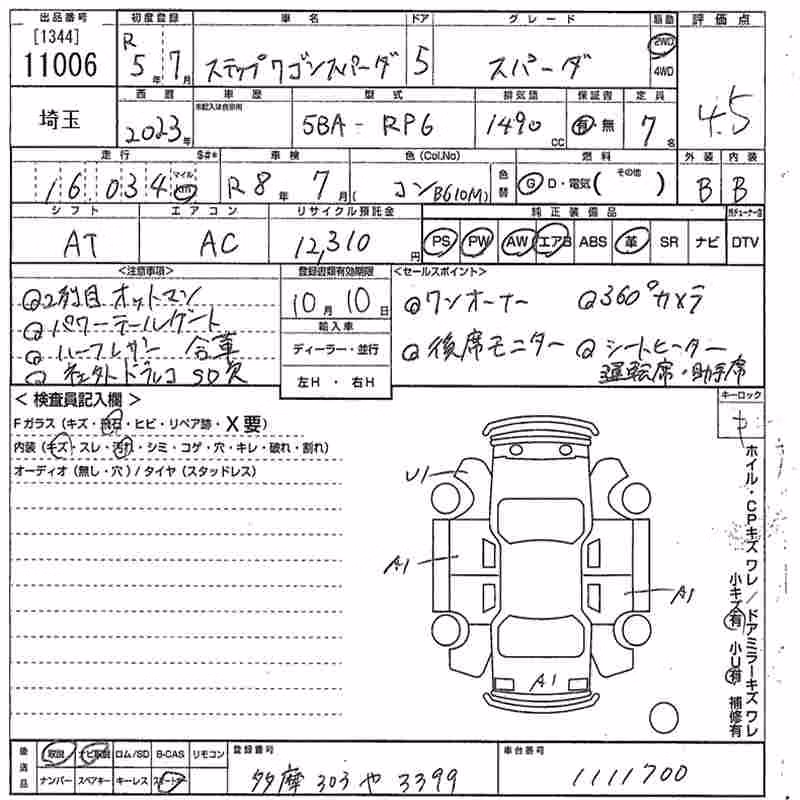 出品番号 初度登録 車名 ドア グレード 駆動 評価点
[1344] R
11006 5年 7月 ステップワゴンスパーダ 5 スパーダ 2WD 4WD 4.5
西暦 車歴 型式 排気量 保証書 定員
埼玉 2023年 5BA - RP6 1490cc 有・無 7名
走行 $#* 車検 色(Col.No) 燃料 外装 内装
16,034 マイル km R8年 7月 ( コン B610(M) 色替 G D・電気( その他 ) B B
シフト エアコン リサイクル預託金 純正装備品
AT AC 12,310円 PS PW AW エアB ABS 革 SR ナビ DTV
<注意事項> 登録書類有効期限 <セールスポイント>
Q2列目オットマン 10月 10日 Qワンオーナー Q360°カメラ
Qパワーテールゲート 輸入車
Qハーフレザー 合革 ディーラー・並行 Q後席モニター Qシートヒーター
Q ドラレコ SD欠 左H・右H 運転席・助手席
<検査員記入欄> キーロック
Fガラス(キズ・飛石・ヒビ・リペア跡・X要)
内装(キズ・スレ・汚れ・シミ・コゲ・穴・キレ・破れ・割れ)
オーディオ(無し・穴)/タイヤ(スタッドレス)
U1
A1
A1
A1
ホイル・CPキズ ワレ/ドアミラーキズ ワレ
小キズ有 小U有 補修有
後送品 取説 ナビ取説 ロム/SD B-CAS リモコン 登録番号 車台番号
ナンバー スペアキー キーレス 多摩 303 や 3399 1111700